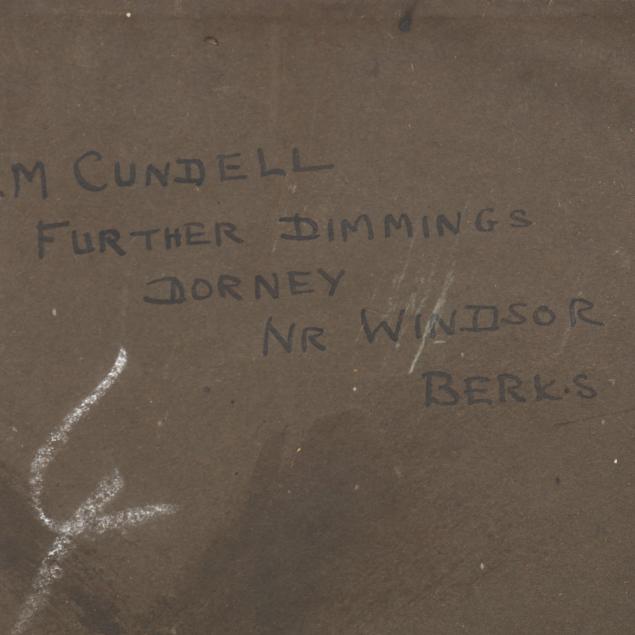 .M CUNDELL
FURTHER DIMMINGS
DORNEY
NR WINDSOR
BERKS